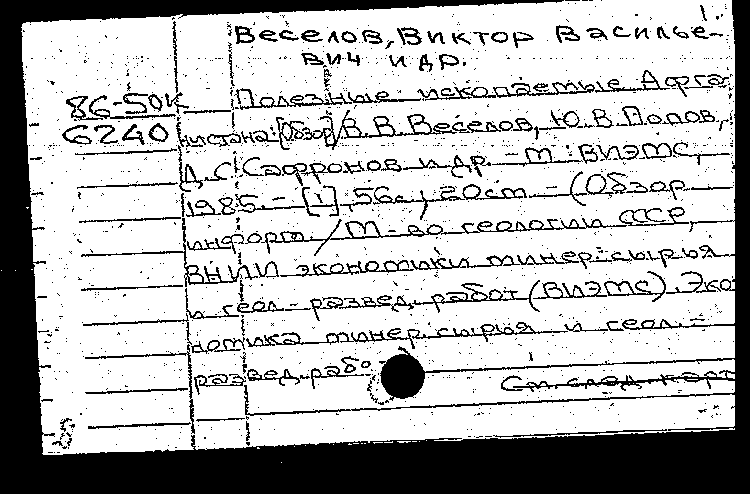 1.
Веселов, Виктор Василье-
вич и др.
86-50к Полезные ископаемые Афга-
6240 нистана: [Обзор] / В. В. Веселов, Ю. В. Попов,
Д. С. Сафронов и др. - М.: ВИЭМС,
1985. - [1], 56 с.; 20 см. - (Обзор
информ. / М-во геологии СССР,
ВНИИ экономики минер. сырья
и геол.-развед. работ (ВИЭМС). Эко-
номика минер. сырья и геол.-
развед. рабо
См. след. карт